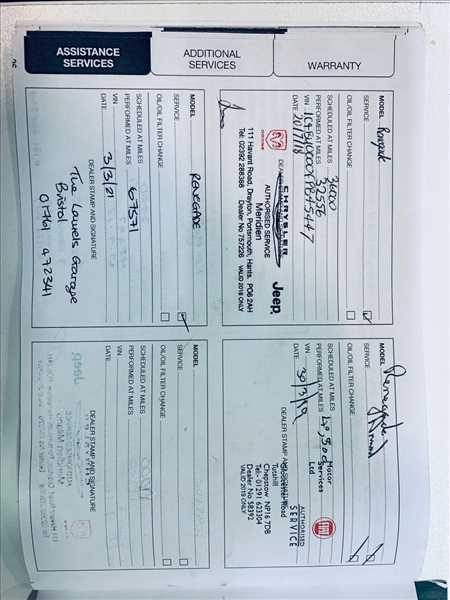 ASSISTANCE
SERVICES
ADDITIONAL
SERVICES
WARRANTY
MODEL Renegade
SERVICE
OIL/OIL FILTER CHANGE
SCHEDULED AT MILES 36000
PERFORMED AT MILES 32556
VIN
DATE 20/7/18
DEALER
CHRYSLER
AUTHORISED SERVICE
Meridien
Jeep
111 Havant Road, Drayton, Portsmouth, Hants. PO6 2AH
Tel: 02392 288388 Dealer No 757226 VALID 2018 ONLY
MODEL Renegade
SERVICE
OIL/OIL FILTER CHANGE
SCHEDULED AT MILES
PERFORMED AT MILES
VIN
DATE 30/3/19
DEALER STAMP AND SIGNATURE
Motor
Services
Ltd
FIAT
AUTHORISED
SERVICE
Road
Tutshill
Chepstow NP16 7DB
Tel:- 01291 623304
Dealer No 58392
VALID 2019 ONLY
MODEL RENEGADE
SERVICE
OIL/OIL FILTER CHANGE
SCHEDULED AT MILES
PERFORMED AT MILES 67571
VIN
DATE 3/3/21
DEALER STAMP AND SIGNATURE
The Laurels Garage
Bristol
01761 472341
MODEL
SERVICE
OIL/OIL FILTER CHANGE
SCHEDULED AT MILES
PERFORMED AT MILES
VIN
DATE
DEALER STAMP AND SIGNATURE